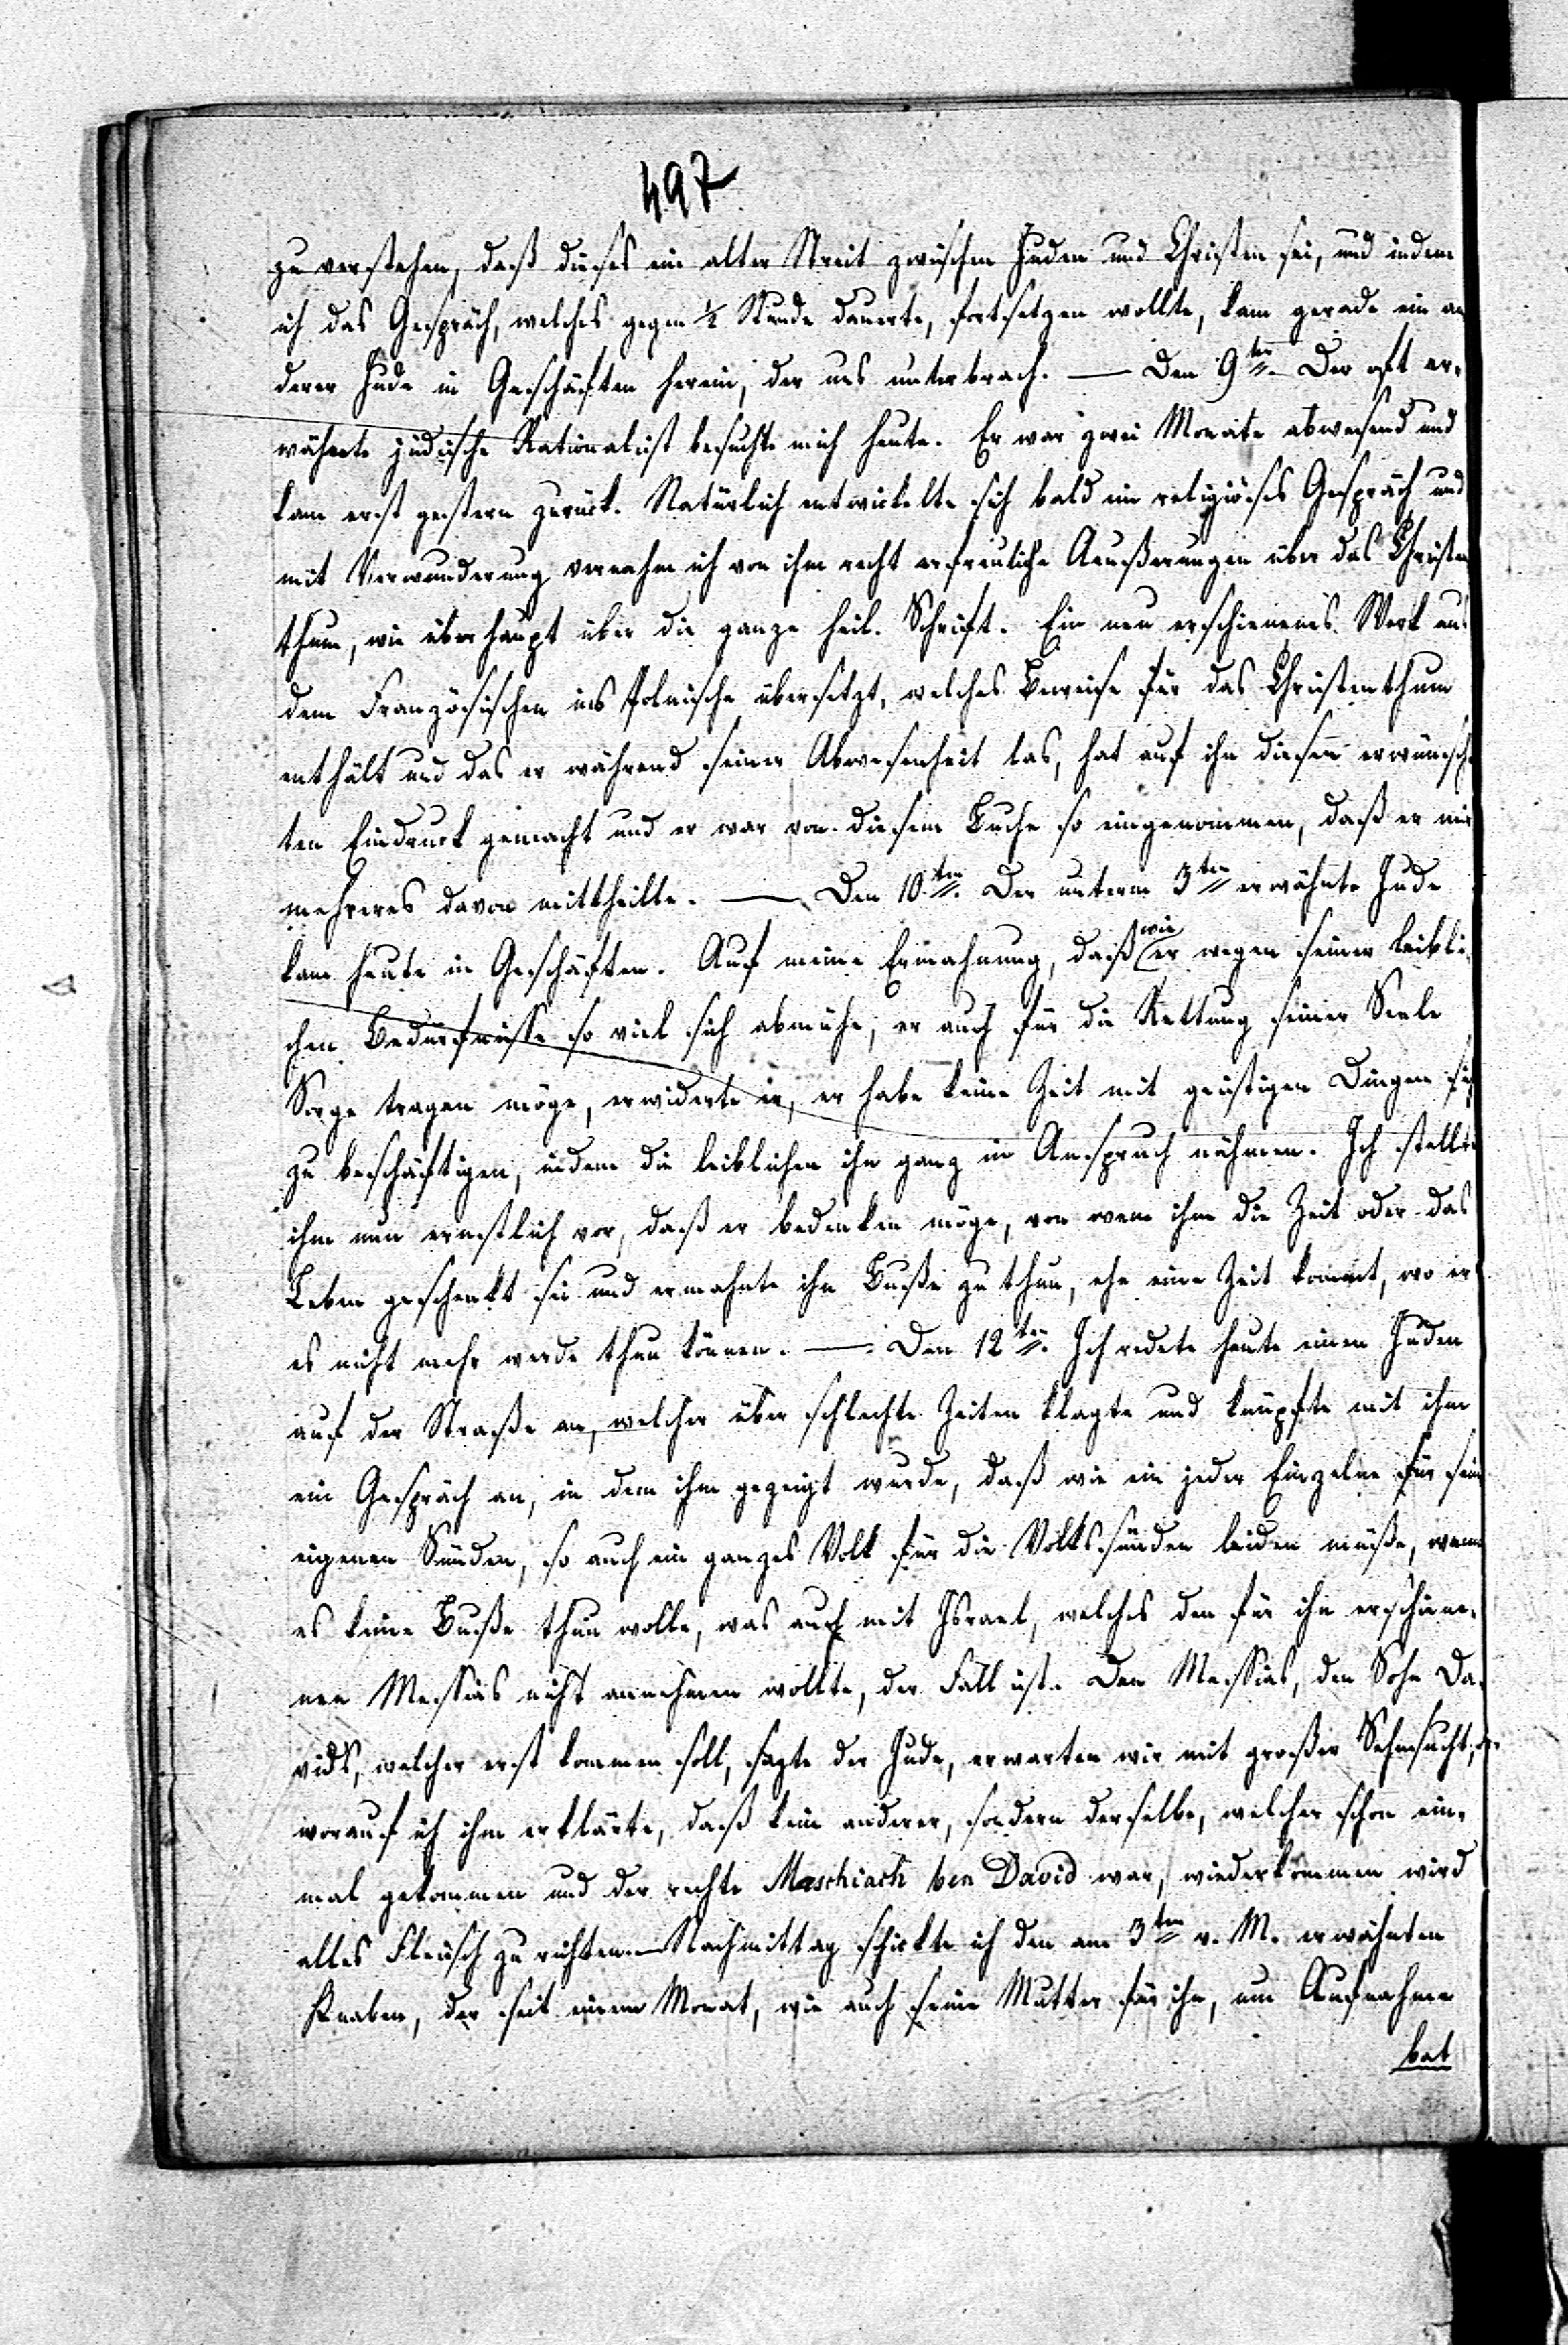 497
zu verstehen, daß dieses ein alter Streit zwischen Juden und Christen sei, und indem
ich das Gespräch, welches gegen ½ Stunde dauerte, fortsetzen wollte, kam gerade ein an
derer Jude in Geschäften herein, der uns unterbrach. — Den 9ten. Der oft er-
wähnte jüdische Rationalist besuchte mich heute. Er war zwei Monate abwesend und
kam erst gestern zurück. Natürlich entwickelte sich bald ein religiöses Gespräch und
mit Verwunderung vernahm ich von ihm recht erfreuliche Aeußerungen über das Christen
thum, wie überhaupt über die ganze heil. Schrift. Ein neu erschienenes Werk aus
dem Französischen ins Polnische übersetzt, welches Beweise für das Christenthum
enthält und das er während seiner Abwesenheit las, hat auf ihn diesen erwünsch
ten Eindruck gemacht und er war von diesem Buche so eingenommen, daß er mir
mehreres davon mittheilte. — Den 10ten. Der unterm 3ten erwähnte Jude
kam heute in Geschäften. Auf meine Ermahnung, daß wie er wegen seiner leibli-
chen Bedürfnisse so viel sich abmühe, er auch für die Rettung seiner Seele
Sorge tragen möge, erwiderte er, er habe keine Zeit mit geistigen Dingen sich
zu beschäftigen, indem die leiblichen ihn ganz in Anspruch nähmen. Ich stellte
ihm nun ernstlich vor, daß er bedenken möge, von wem ihm die Zeit oder das
Leben geschenkt sei und ermahnte ihn Buße zu thun, ehe eine Zeit kommt, wo er
es nicht mehr werde thun können. — Den 12ten. Ich redete heute einen Juden
auf der Straße an, welcher über schlechte Zeiten klagte und knüpfte mit ihm
ein Gespräch an, in dem ihm gezeigt wurde, daß wie ein jeder Einzelne für sein
eigenen Sünden, so auch ein ganzes Volk für die Volkssünden leiden müße, wenn
es keine Buße thun wolle, was auch mit Israel, welches den für ihn erschiene-
nen Messias nicht annehmen wollte, der Fall ist. Den Messias, den Sohn Da-
vids, welcher erst kommen soll, sagte der Jude, erwarten wir mit großer Sehnsucht,
worauf ich ihm erklärte, daß kein anderer, sondern derselbe, welcher schon ein-
mal gekommen und der rechte Maschiach ben David war, wiederkommen wird
alles Fleisch zu richten. — Nachmittag schickte ich den am 3ten v. M. erwähnten
Knaben, der seit einem Monat, wie auch seine Mutter für ihn, um Aufnahme
bat